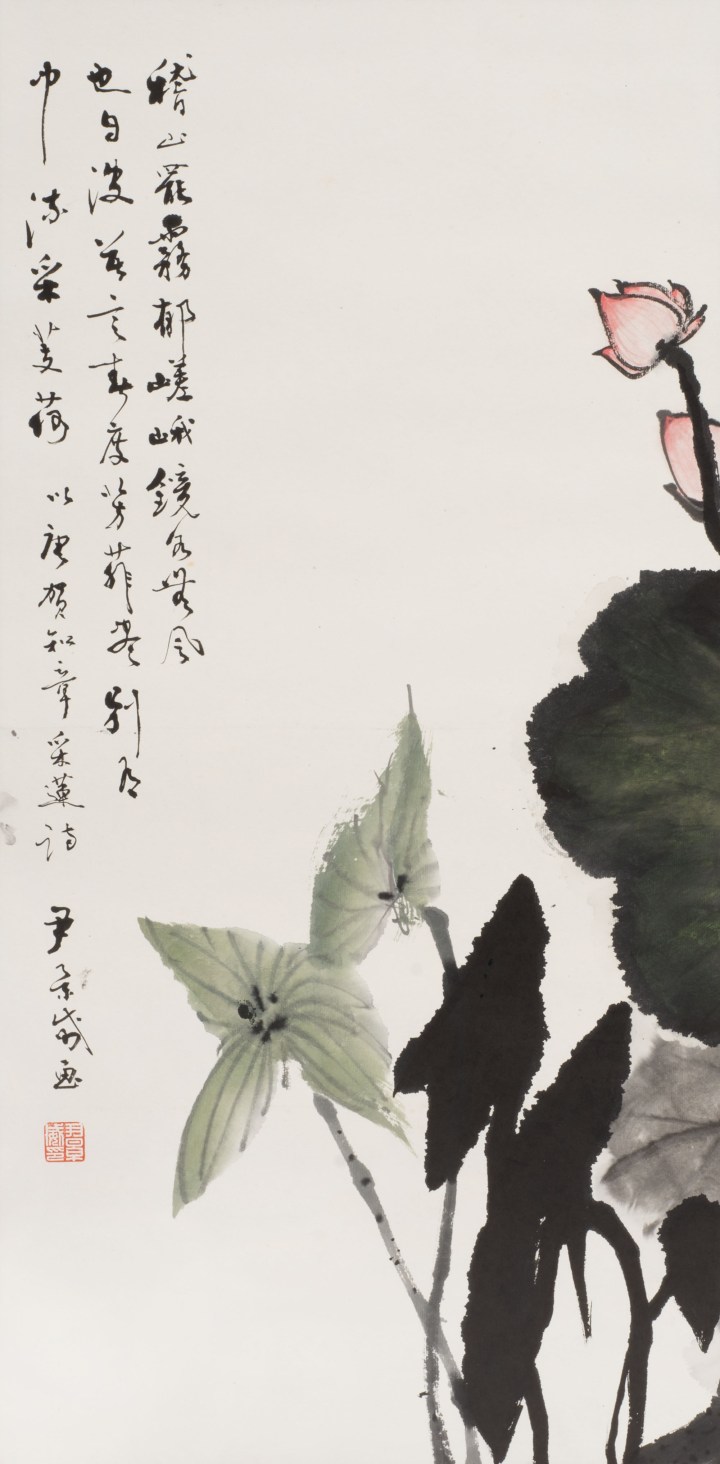 稽山罷霧郁嵯峨鏡水無風
也自波莫言春度芳菲盡別有
中流采芰荷 以唐賀知章采蓮詩 尹景画